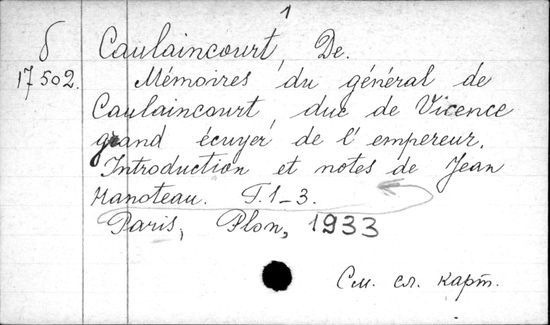 1
б
17502.
Caulaincourt, De.
Mémoires du général de
Caulaincourt, duc de Vicence
grand écuyer de l'empereur.
Introduction et notes de Jean
Hanoteau. T.1-3.
Paris, Plon, 1933
См. сл. карт.